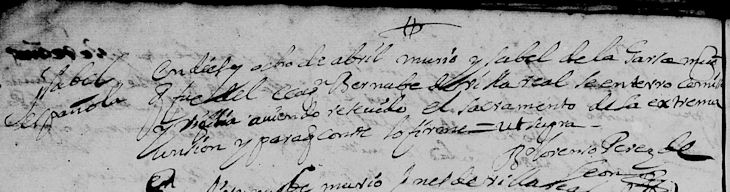 Ysabel
española
en dies y ocho de abril murio ysabel de la Garsa muger
q fue del cap.n Bernabe de villa real se enterro con misa
y vigilia aviendo resevido el sacramento de la extrema
unsion y para q conste lo firme = ut supra
Lorenso Perez de
Leon
murio Ynes de villa